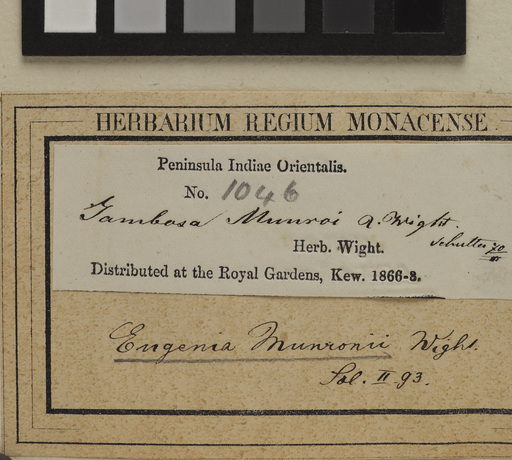 HERBARIUM REGIUM MONACENSE
Peninsula Indiae Orientalis.
No. 1046
Jambosa Munroi R. Wight.
Herb. Wight.
Distributed at the Royal Gardens, Kew. 1866-8.
Eugenia Munronii Wight.
II 93.